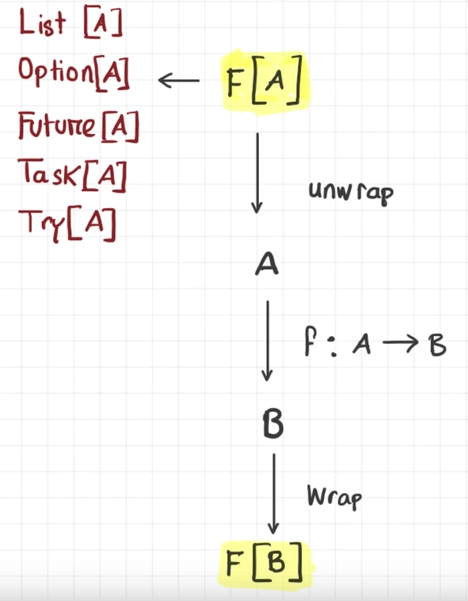 List [A]
Option[A]
Future [A]
Task[A]
Try[A]
← F[A]
↓ unwrap
A
↓ f : A → B
B
↓ Wrap
F[B]